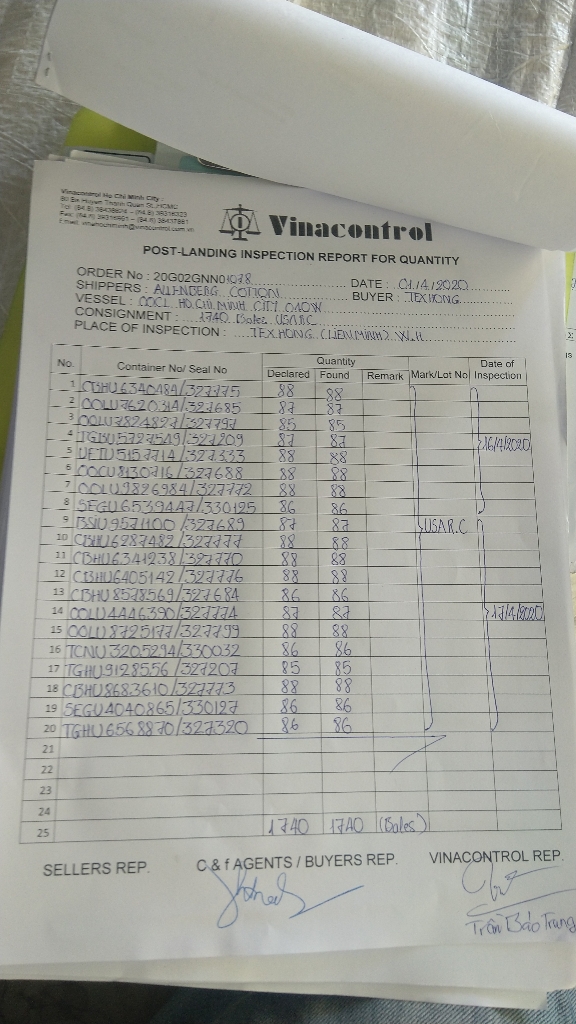 Vinacontrol Ho Chi Minh City :
80 Ba Huyen Thanh Quan St., HCMC
Vinacontrol
POST-LANDING INSPECTION REPORT FOR QUANTITY
ORDER No : 20G02GNN01078 DATE : 01/4/2020
SHIPPERS : ALLENBERG COTTON BUYER : TEXHONG
VESSEL : OOCL HO CHI MINH CITY 010W
CONSIGNMENT : 1740 Bales USAR.C
PLACE OF INSPECTION : TEXHONG (LIEN MINH) W.H
No. Container No/ Seal No Quantity Mark/Lot No Date of Inspection
Declared Found Remark
1 CBHU6340484/327775 88 88
2 OOLU7620314/327685 87 87
3 OOLU7824827/327797 85 85
4 TGBU5727549/327209 87 87 16/4/2020
5 UETU5157714/327333 88 88
6 OOCU8130716/327688 88 88
7 OOLU9826984/327772 88 88
8 SEGU6539447/330125 86 86
9 BSIU9571100/327689 87 87 USAR.C
10 CBHU6287482/327777 88 88
11 CBHU6341238/327770 88 88
12 CBHU6405142/327776 88 88
13 CBHU8578569/327684 86 86
14 OOLU4446390/327774 87 87 17/4/2020
15 OOLU8725177/327799 88 88
16 TCNU3205294/330032 86 86
17 TGHU9128556/327207 85 85
18 CBHU8683610/327773 88 88
19 SEGU4040865/330127 86 86
20 TGHU6568870/327320 86 86
21
22
23
24
25 1740 1740 (Bales)
SELLERS REP. C & f AGENTS / BUYERS REP. VINACONTROL REP.
Trần Bảo Trung